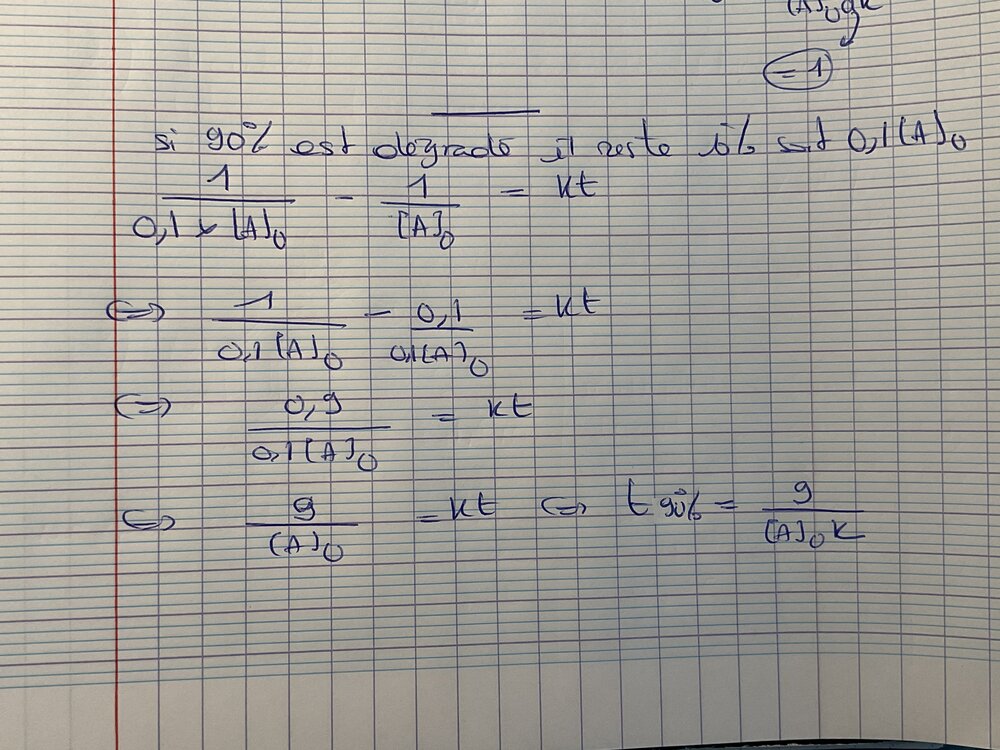 = 1
si 90% est dégradé il reste 10% soit 0,1[A]₀
1/(0,1 × [A]₀) - 1/[A]₀ = kt
⇔ 1/(0,1[A]₀) - 0,1/(0,1[A]₀) = kt
⇔ 0,9/(0,1[A]₀) = kt
⇔ 9/[A]₀ = kt ⇔ t 90% = 9/([A]₀ k)